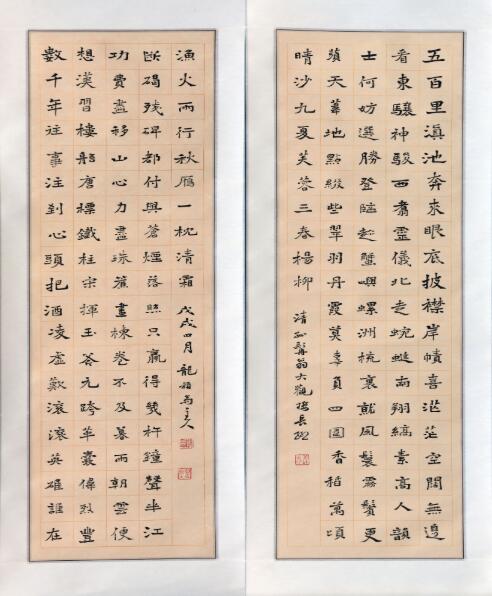 五百里滇池奔來眼底披襟岸幘喜茫茫空闊無邊
看東驤神駿西翥靈儀北走蜿蜒南翔縞素高人韻
士何妨選勝登臨趁蟹嶼螺洲梳裹就風鬟霧鬢更
蘋天葦地點綴些翠羽丹霞莫負四圍香稻萬頃
晴沙九夏芙蓉三春楊柳
清孫髯翁大觀樓長聯
數千年往事注到心頭把酒凌虛歎滾滾英雄誰在
想漢習樓船唐標鐵柱宋揮玉斧元跨革囊偉烈豐
功費盡移山心力盡珠簾畫棟卷不及暮雨朝雲便
斷碣殘碑都付與蒼煙落照只贏得幾杵鐘聲半江
漁火兩行秋雁一枕清霜
戊戌四月龍主人